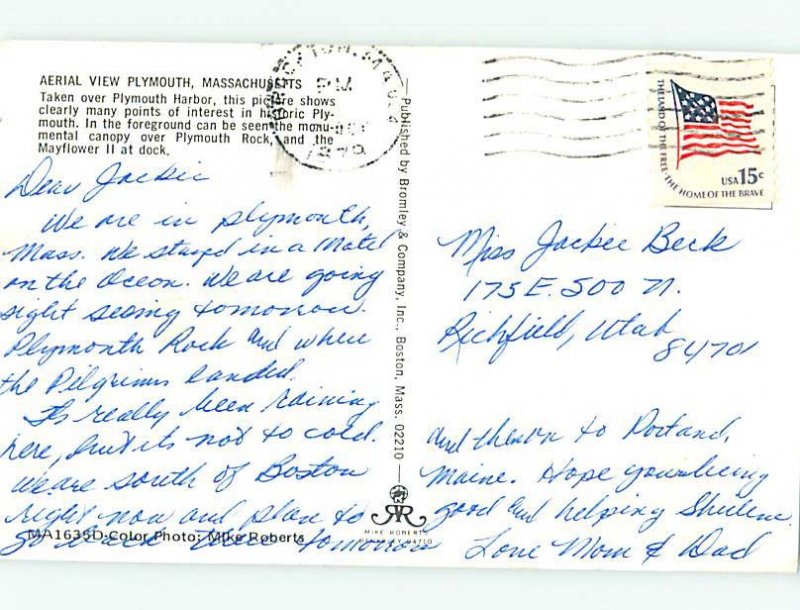 AERIAL VIEW PLYMOUTH, MASSACHUSETTS
Taken over Plymouth Harbor, this picture shows
clearly many points of interest in historic Ply-
mouth. In the foreground can be seen the monu-
mental canopy over Plymouth Rock, and the
Mayflower II at dock.
Dear Jackie
We are in plymouth,
Mass. We stayed in a Motel
on the Ocean. We are going
sight seeing tomorrow.
Plymonth Rock and where
the Pilgrims landed.
It's really been raining
here, but its not to cold.
We are south of Boston
right now and plan to
go back there tomorrow
MA1635D-Color Photo: Mike Roberts
Published by Bromley & Company, Inc., Boston, Mass. 02210
MIKE ROBERTS
PM
THE LAND OF THE FREE · THE HOME OF THE BRAVE
USA 15c
Miss Jackie Beck
175 E. 500 N.
Richfield, Utah
84701
and then on to Portand,
Maine. Hope your being
good and helping Sheilene.
Love Mom & Dad